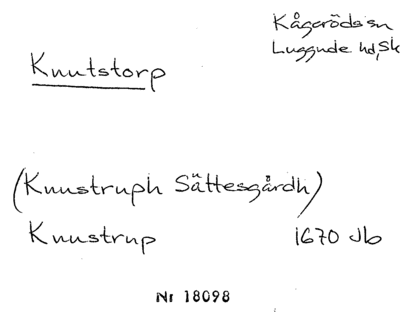 Kågeröds sn
Luggude hd, Sk
Knutstorp
(Knustruph Sättesgårdh)
Knustrup 1670 Jb
Nr 18098